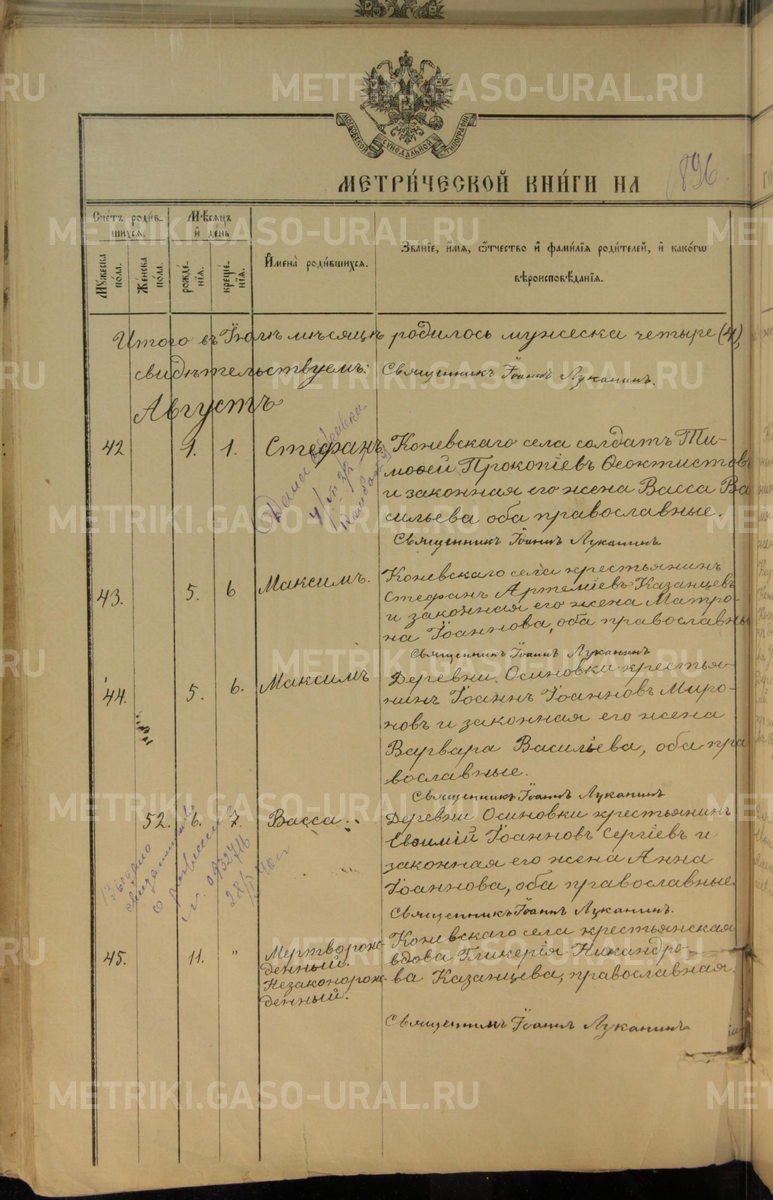 METRIKI.GASO-URAL.RU
МОСКОВСКОЙ СѴНОДАЛЬНОЙ ТИПОГРАФІИ
МЕТРИ́ЧЕСКОЙ КНИ́ГИ НА 1896.
Счетъ роди́вшихся.
Мѣсяцъ и день
Му́жеска по́ла.
Же́нска по́ла.
рожде́нія.
креще́нія.
Имена̀ роди́вшихся.
Зва́ніе, и́мя, ѻ҆́тчество и фами́лія роди́телей, и како́гѡ
вѣроисповѣ́данія.
Итого въ Іюлѣ мѣсяцѣ родилось мужеска четыре (4),
свидѣтельствуемъ: Священникъ Іоаннъ Луканинъ.
Августъ
42 1. 1. Стефанъ
Коневскаго села солдатъ Ти-
моѳей Прокопіевъ Ѳеоктистовъ
и законная его жена Васса Ва
сильева оба православные.
Священникъ Іоаннъ Луканинъ
43. 5. 6 Максимъ.
Коневскаго села крестьянинъ
Стефанъ Артеміевъ Казанцевъ
и законная его жена Матро-
на Іоаннова, оба православны
Священникъ Іоаннъ Луканинъ
44. 5. 6. Максимъ
Деревни Осиновки крестья-
нинъ Іоаннъ Іоанновъ Миро-
новъ и законная его жена
Варвара Васильева, оба пра
вославные.
Священникъ Іоаннъ Луканинъ
52. 6. 7. Васса
Деревни Осиновки крестьянинъ
Евѳимій Іоанновъ Сергіевъ и
законная его жена Анна
Іоаннова, оба православные.
Священникъ Іоаннъ Луканинъ.
45. 11. " Мертворож-
денный.
Незаконорож-
денный.
Коневскаго села крестьянская
вдова Гликерія Никандро-
ва Казанцева, православная.
Священникъ Іоаннъ Луканинъ